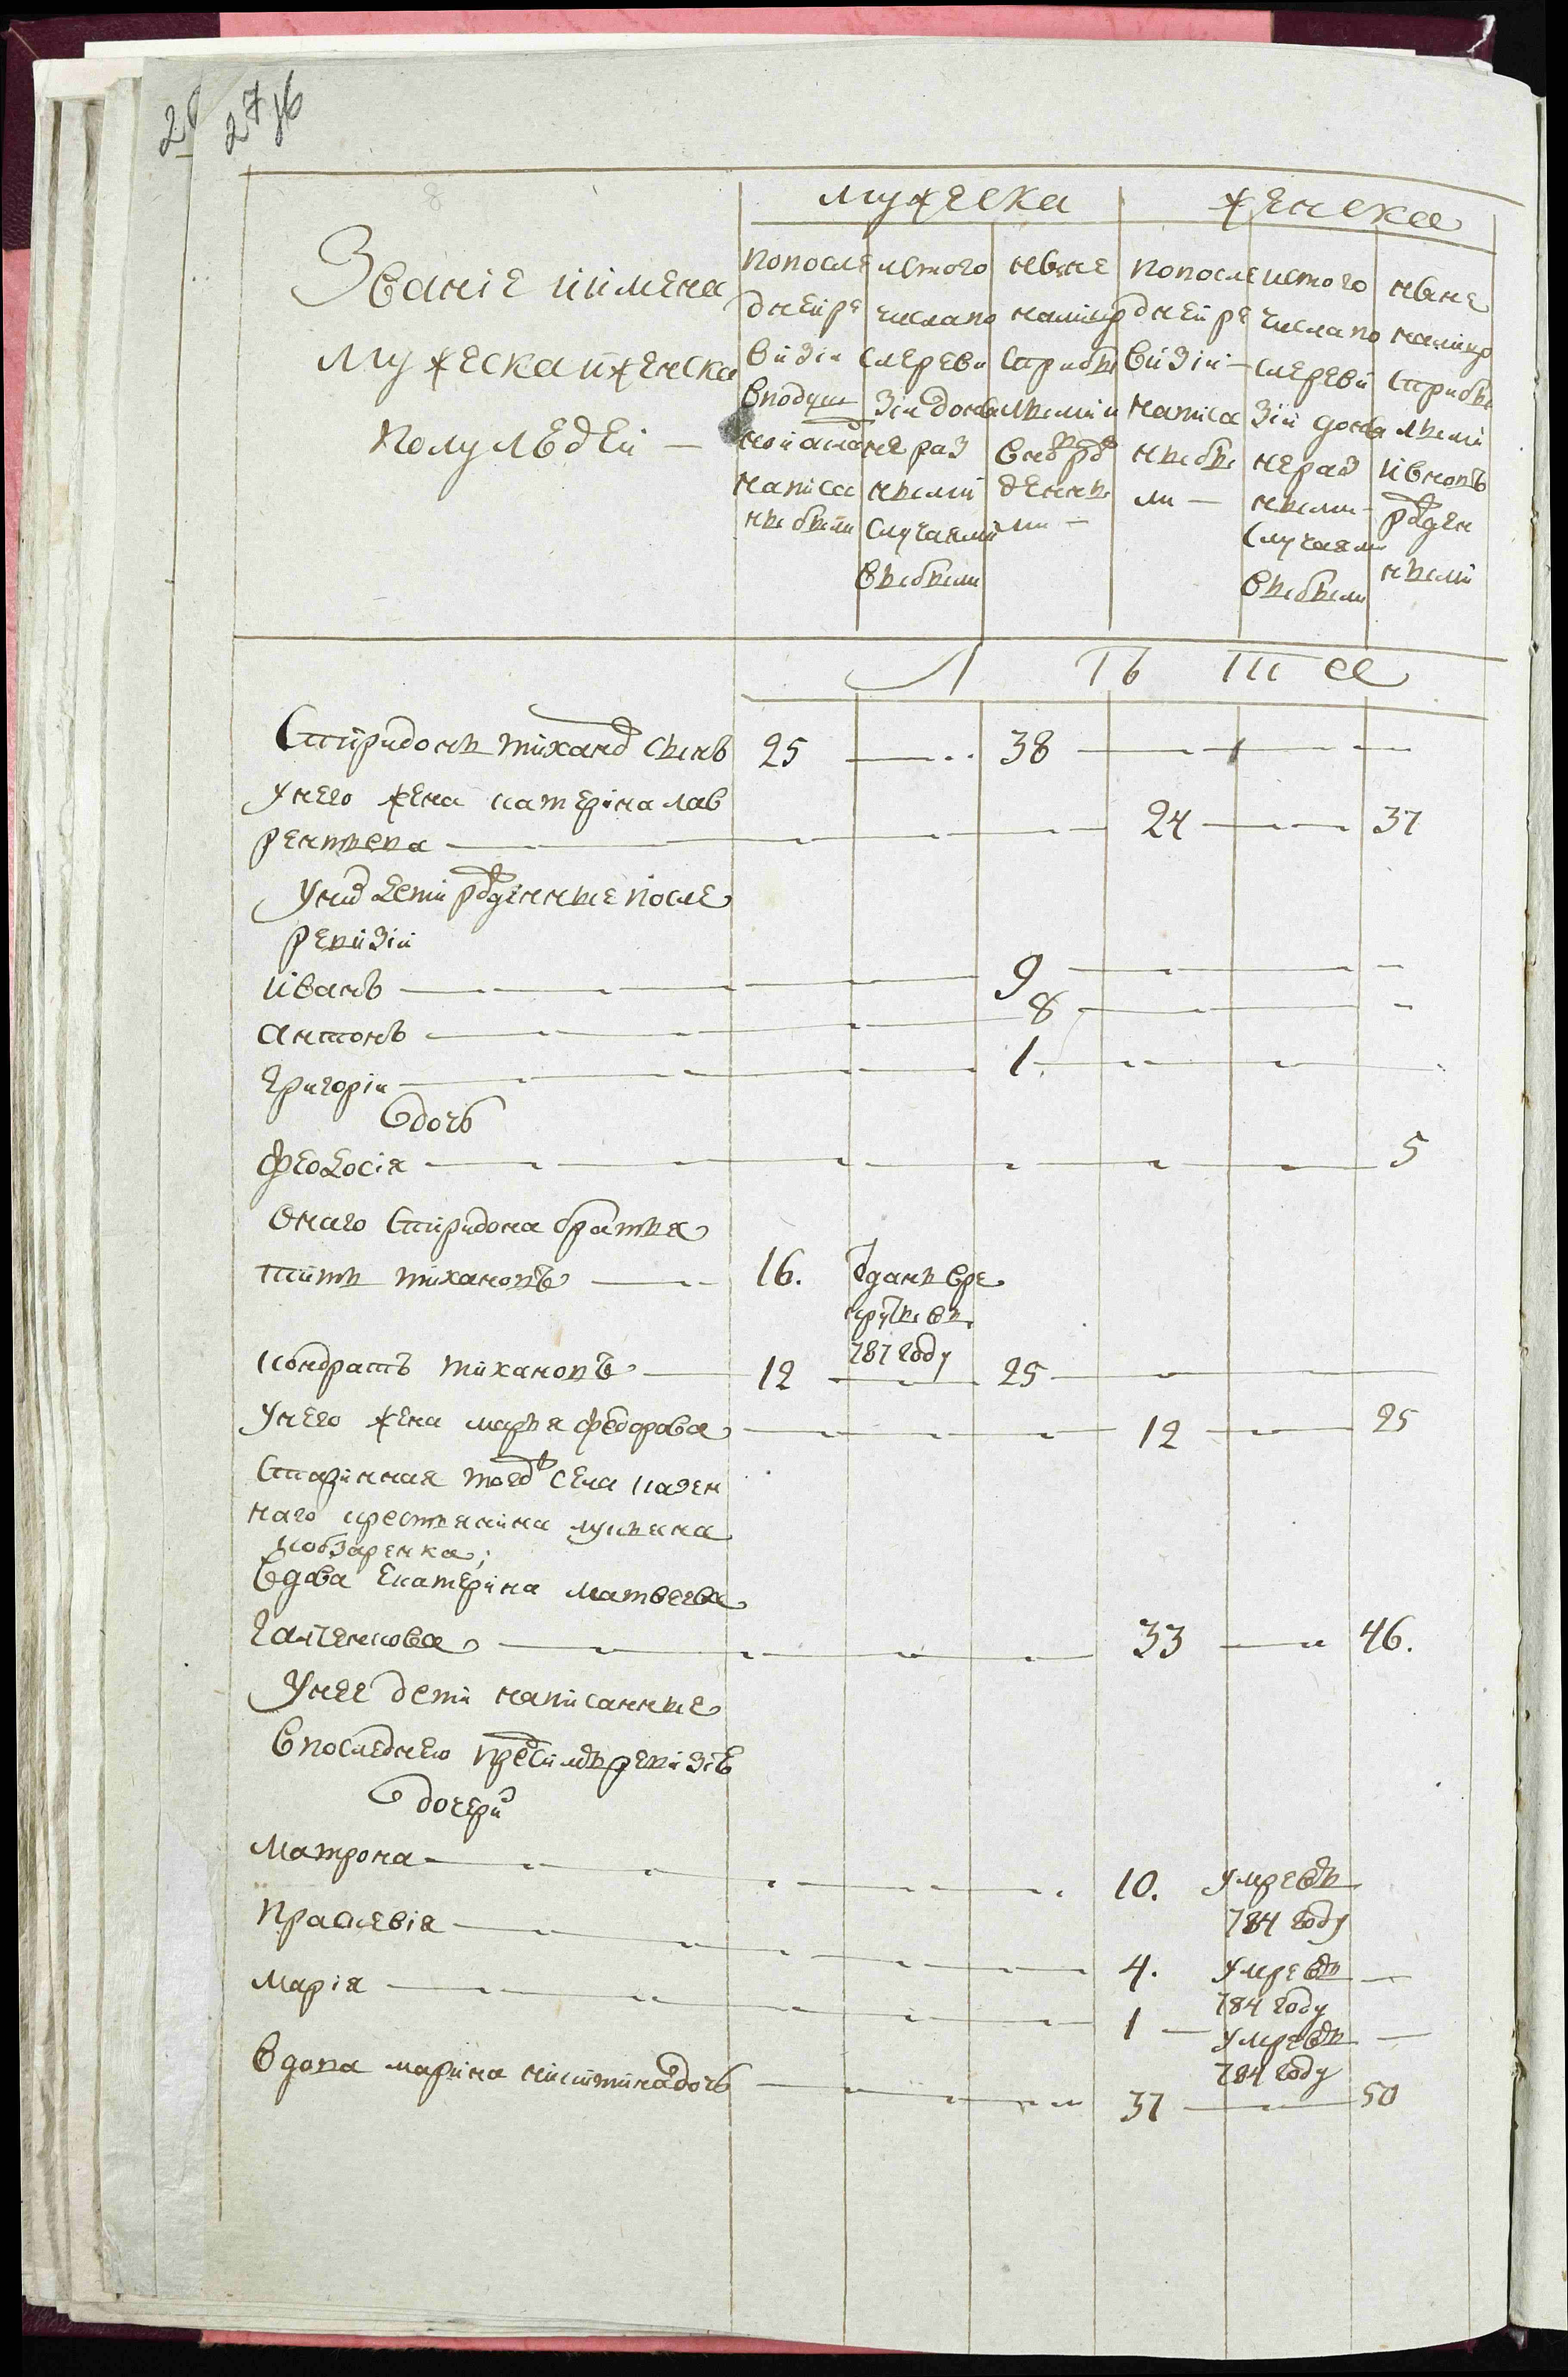 27
мужеска женска
Званіе иимена
мужеска иженска
полу людей —
попосле
дней ре
визіи
вподуш
ной окла
написа
ны были
истого
числа по
сле реви
зіи доны
не раз
ными
случаями
выбыли
ныне
налицо
сприбы
лыми и
вновь рож
денны
ми —
попосле
дней ре
визіи —
написа
ны бы
ли —
истого
числа по
сле реви
зіи доны
не раз
ными
случаями
выбыли
ныне
налицо
сприбы
лыми
ивновь
рожден
ными
Л Ѣ Т а
Спиридонъ тиханов сынъ 25 38
Унего жена катерина лав
рентьева 24 37
Уних дети рожденные после
ревизіи
Иванъ 9
Антонъ 8
Григоріи 1
дочь
Феодосія 5
Онаго Спиридона братья
Титъ тихановъ 16. Отданъ вре
круты въ
787 году
Кондратъ тихановъ 12 25
Унего жена марья федорова 12 25
Старинная тогож села казен
наго крестьянина лукьяна
кобзаренка;
Вдова Екатерина матвеева
Галченкова 33 46.
Унее дети написанные
впоследнею пред симъ ревизіе
дочери
Матрона 10. Умре въ
784 году
Праскевія 4. Умре въ
784 году
Марія 1 Умре въ
784 году
Вдова марина никитина дочь 37 50